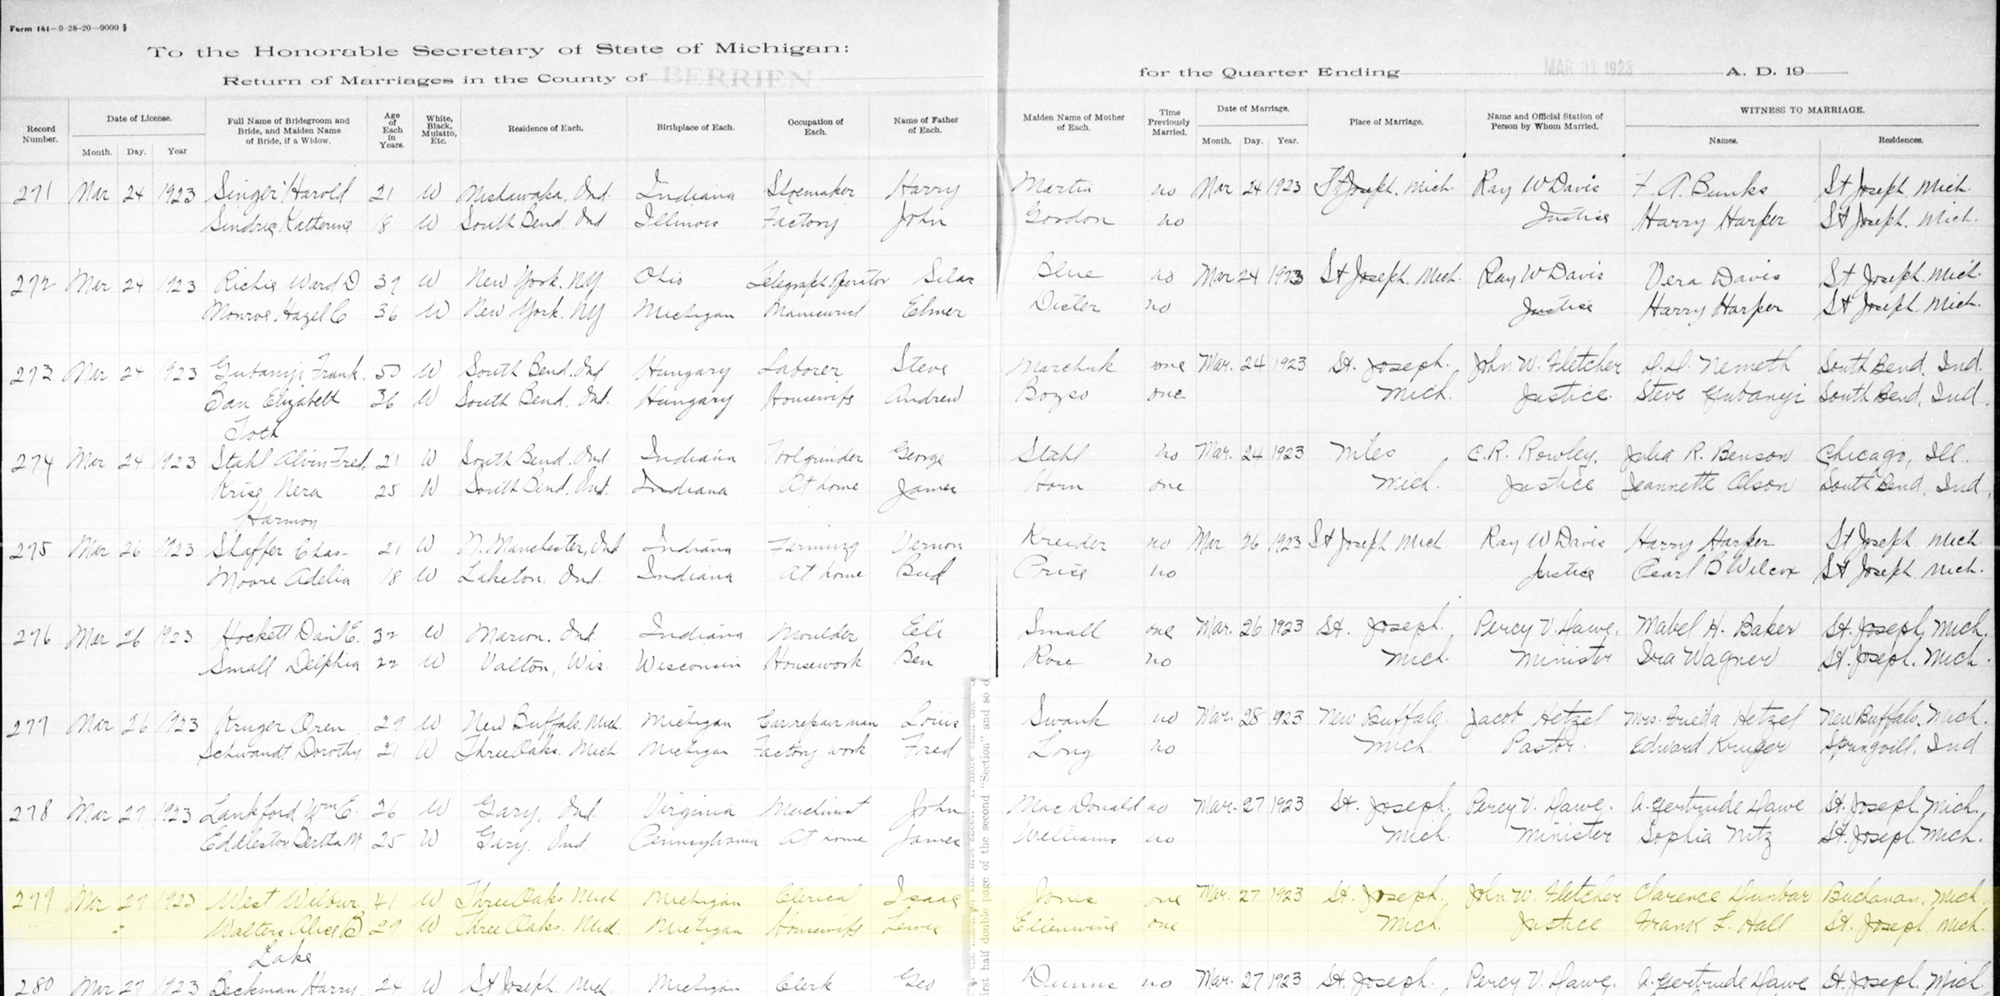 Form 141—9-28-20—9000
To the Honorable Secretary of State of Michigan:
Return of Marriages in the County of BERRIEN for the Quarter Ending MAR 31 1923 A. D. 19
Record Number. Date of License. Month. Day. Year Full Name of Bridegroom and Bride, and Maiden Name of Bride, if a Widow. Age of Each in Years. White, Black, Mulatto, Etc. Residence of Each. Birthplace of Each. Occupation of Each. Name of Father of Each. Maiden Name of Mother of Each. Time Previously Married. Date of Marriage. Month. Day. Year. Place of Marriage. Name and Official Station of Person by Whom Married. WITNESS TO MARRIAGE. Names. Residences.
271 Mar 24 1923 Singer Harold 21 W Mishawaka, Ind Indiana Shoemaker Harry Martin no Mar 24 1923 St Joseph. Mich. Ray W Davis F. A. Bunks St Joseph Mich
Katherine 18 W South Bend Ind Illinois Factory John Gordon no Justice Harry Harper St Joseph. Mich.
272 Mar 24 1923 Richie Ward D 37 W New York. NY Ohio Telegraph Operator Silas Blue no Mar 24 1923 St Joseph. Mich. Ray W Davis Vera Davis St Joseph. Mich.
Monroe Hazel C 36 W New York. NY Michigan Manicurist Elmer Dieter no Justice Harry Harper St Joseph Mich.
273 Mar 24 1923 Gubanyi Frank. 50 W South Bend. Ind Hungary Laborer Steve Marchuk one Mar. 24 1923 St. Joseph. John W. Fletcher Nemeth South Bend, Ind.
Elizabeth 36 W South Bend. Ind. Hungary Housewife Andrew one Mich. Justice. Steve Gubanyi South Bend, Ind.
Toth
274 Mar 24 1923 Stahl Alvin Fred. 21 W South Bend. Ind. Indiana Toolgrinder George Stahl no Mar. 24 1923 Niles C. R. Rowley. Julia R. Benson Chicago, Ill.
Krise Nera 25 W South Bend. Ind. Indiana At home James Horn one Mich. Justice Jeannette Olson South Bend, Ind.
Harmon
275 Mar 26 1923 Shaffer Chas. 21 W N. Manchester, Ind Indiana Farming Vernon Kreider no Mar 26 1923 St Joseph Mich Ray W Davis Harry Harper St Joseph Mich.
Moore Adelia 18 W Laketon. Ind. Indiana At home Bud Price no Justice Pearl B Wilcox St Joseph Mich.
276 Mar 26 1923 Hockett Dail E. 32 W Marion. Ind. Indiana Moulder Eli Small one Mar. 26 1923 St. Joseph. Percy V. Dawe. Mabel H. Baker St. Joseph, Mich.
Small Delphia 22 W Valton, Wis. Wisconsin Housework Ben Rose no Mich. Minister Ira Wagner St. Joseph. Mich.
277 Mar 26 1923 Kruger Oren 29 W New Buffalo. Mich. Michigan Car repair man Louis Swank no Mar. 28 1923 New Buffalo, Jacob Hetzel Mrs. Frieda Hetzel New Buffalo, Mich.
Schwandt Dorothy 21 W Three Oaks. Mich Michigan Factory work Fred Long no Mich. Pastor. Edward Kruger Springvill, Ind
278 Mar 27 1923 Lankford Wm E. 26 W Gary, Ind. Virginia Machinist John MacDonald no Mar. 27 1923 St. Joseph. Percy V. Dawe. A. Gertrude Dawe St. Joseph, Mich.
Eddleston Bertha M 25 W Gary, Ind Pennsylvania At home James Williams no Mich. Minister Sophia Nitz St. Joseph Mich.
279 Mar 27 1923 West Wilbur 41 W Three Oaks. Mich Michigan Clerical Isaac Jones one Mar. 27 1923 St. Joseph, John W. Fletcher Clarence Dunbar Buchanan, Mich.
Walters Alice B 29 W Three Oaks. Mich. Michigan Housewife Lewis Ellenwine one Mich. Justice Frank L. Hall St. Joseph Mich.
Lake
280 Mar 27 1923 Beckman Harry 24 W St Joseph Mich. Michigan Clerk Geo no Mar. 27 1923 St. Joseph. Percy V. Dawe. A. Gertrude Dawe St. Joseph, Mich.